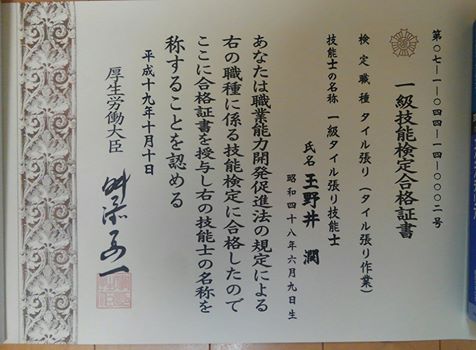 第〇七―一―〇四四―一四―〇〇〇二号
一級技能検定合格証書
検定職種 タイル張り(タイル張り作業)
技能士の名称 一級タイル張り技能士
氏名 玉野井 潤
昭和四十八年六月九日生
あなたは職業能力開発促進法の規定による
右の職種に係る技能検定に合格したので
ここに合格証書を授与し右の技能士の名称を
称することを認める
平成十九年十月十日
厚生労働大臣
舛添要一